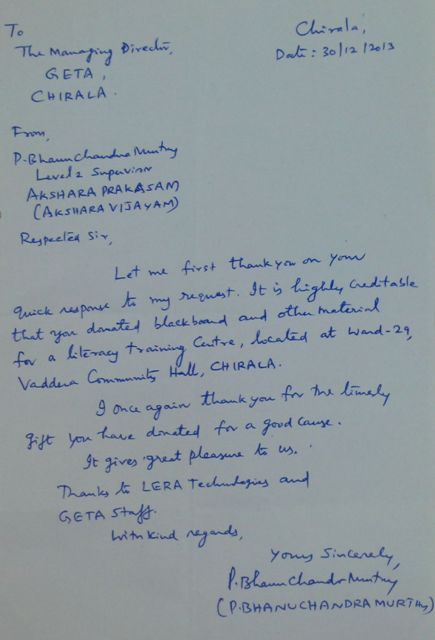 To
Chirala,
The Managing Director,
Date: 30/12/2013
GETA,
CHIRALA.
From,
P. Bhanu Chandra Murthy
Level 2 Supervisor
AKSHARA PRAKASAM
(AKSHARA VIJAYAM)
Respected Sir,
Let me first thank you on your
quick response to my request. It is highly creditable
that you donated blackboard and other material
for a literacy training Centre, located at Ward-29,
Vaddera Community Hall, CHIRALA.
I once again thank you for the timely
gift you have donated for a good cause.
It gives great pleasure to us.
Thanks to LERA Technologies and
GETA Staff.
With kind regards,
Yours Sincerely,
P. Bhanu Chandra Murthy
(P. BHANUCHANDRA MURTHY)